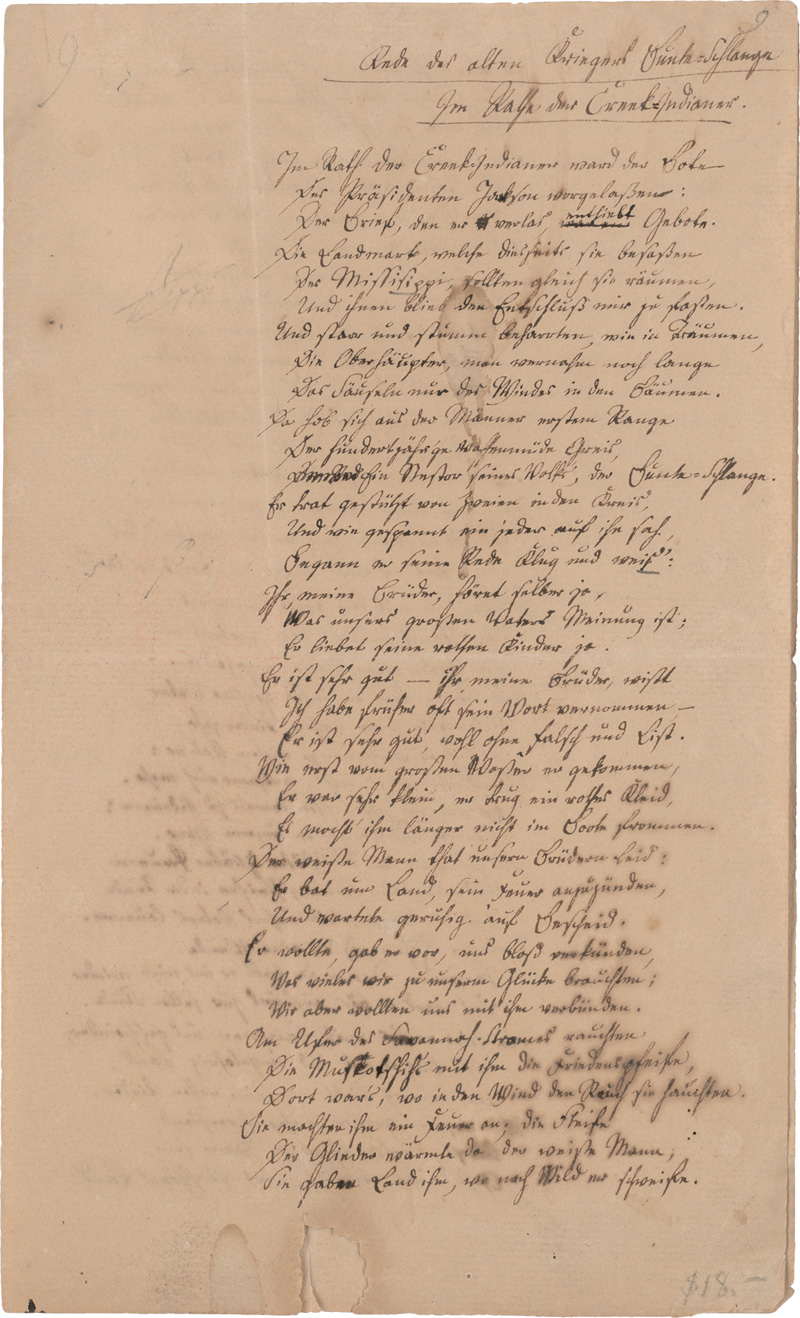 9
9
Rede des alten Kriegers Bunte-Schlange
Im Rathe der Creek-Indianer.
Im Rath der Creek-Indianer ward der Bote
Des Präsidenten Jakson vorgelaßen:
Der Brief, den er verlas, enthielt Gebote.
Die Landmark, welche diesseits sie besaßen
Des Missisippi, sollten gleich sie räumen,
Und ihnen blieb den Entschluß nur zu faßen.
Und starr und stumm beharrten, wie in Träumen,
Die Oberhäupter, man vernahm noch lange
Das Säuseln nur des Windes in den Bäumen.
Da hob sich aus der Männer erstem Range
Der hundertjähr'ge waffenmüde Greis,
Ein Nestor seines Volks, der Bunte-Schlange.
Er trat gestützt von Zweien in den Kreis,
Und wie gespannt ein jeder auf ihn sah,
Begann er seine Rede klug und weis':
Ihr, meine Brüder, höret selber ja,
Was unsers großen Vaters Meinung ist;
Er liebet seine rothen Kinder ja.
Er ist sehr gut — ihr, meine Brüder, wißt
Ich habe früher oft sein Wort vernommen —
Er ist sehr gut, wohl ohne Falsch und List.
Wie erst vom großen Waßer er gekommen,
Er war sehr klein, er trug ein rothes Kleid,
Es mocht' ihm länger nicht im Boote frommen.
Der weiße Mann that unsern Brüdern leid:
Er bat um Land, sein Feuer anzuzünden,
Und wartete geruhig auf Bescheid.
Er wollte, gab er vor, uns bloß verkünden,
Was vieles wir zu unserm Glücke brauchten;
Wir aber wollten uns mit ihm verbünden.
Am Ufer des Savannah-Stromes rauchten
Die Muskotshihs mit ihm die Friedenspfeife,
Dort war's, wo in den Wind den Rauch sie hauchten.
Sie machten ihm ein Feuer an; die Steife
Der Glieder wärmte da der weiße Mann;
Sie gaben Land ihm, wo nach Wild er schweife.
$18.—